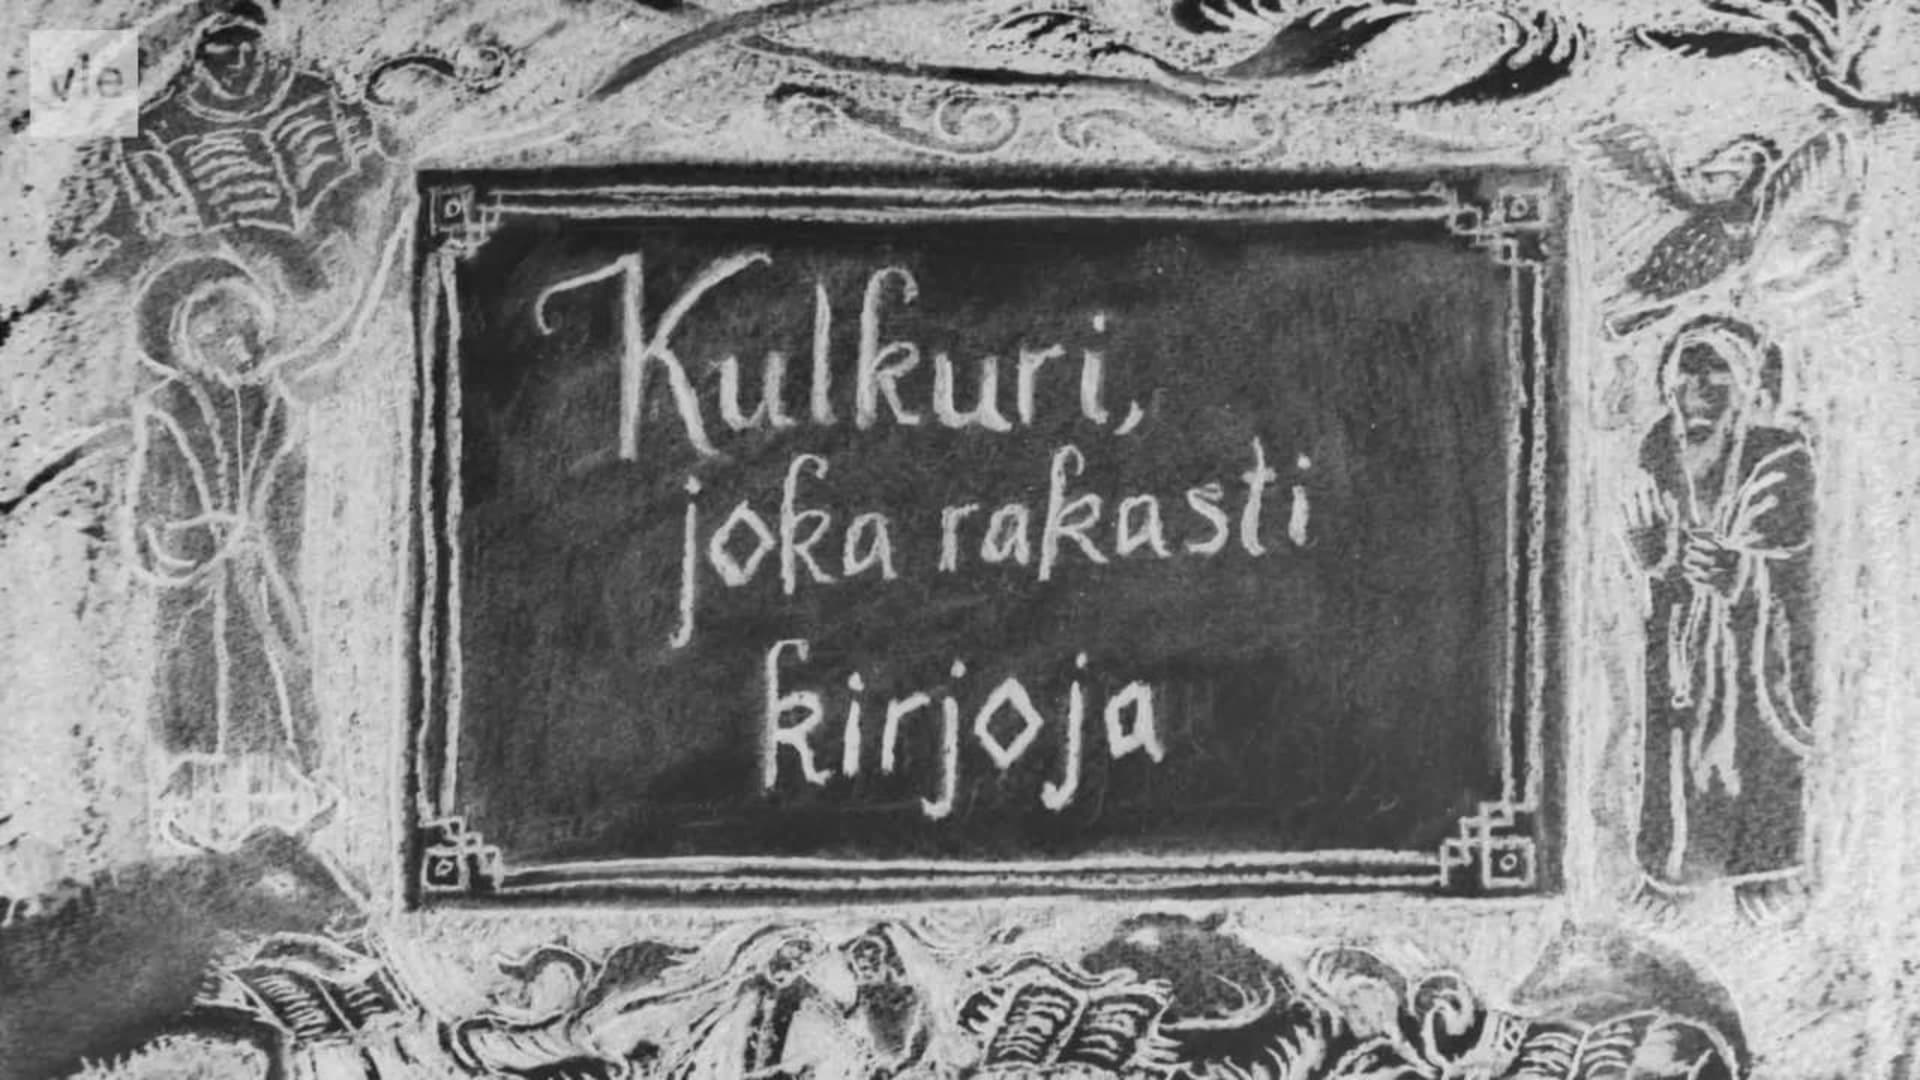 yle
Kulkuri,
joka rakasti
kirjoja